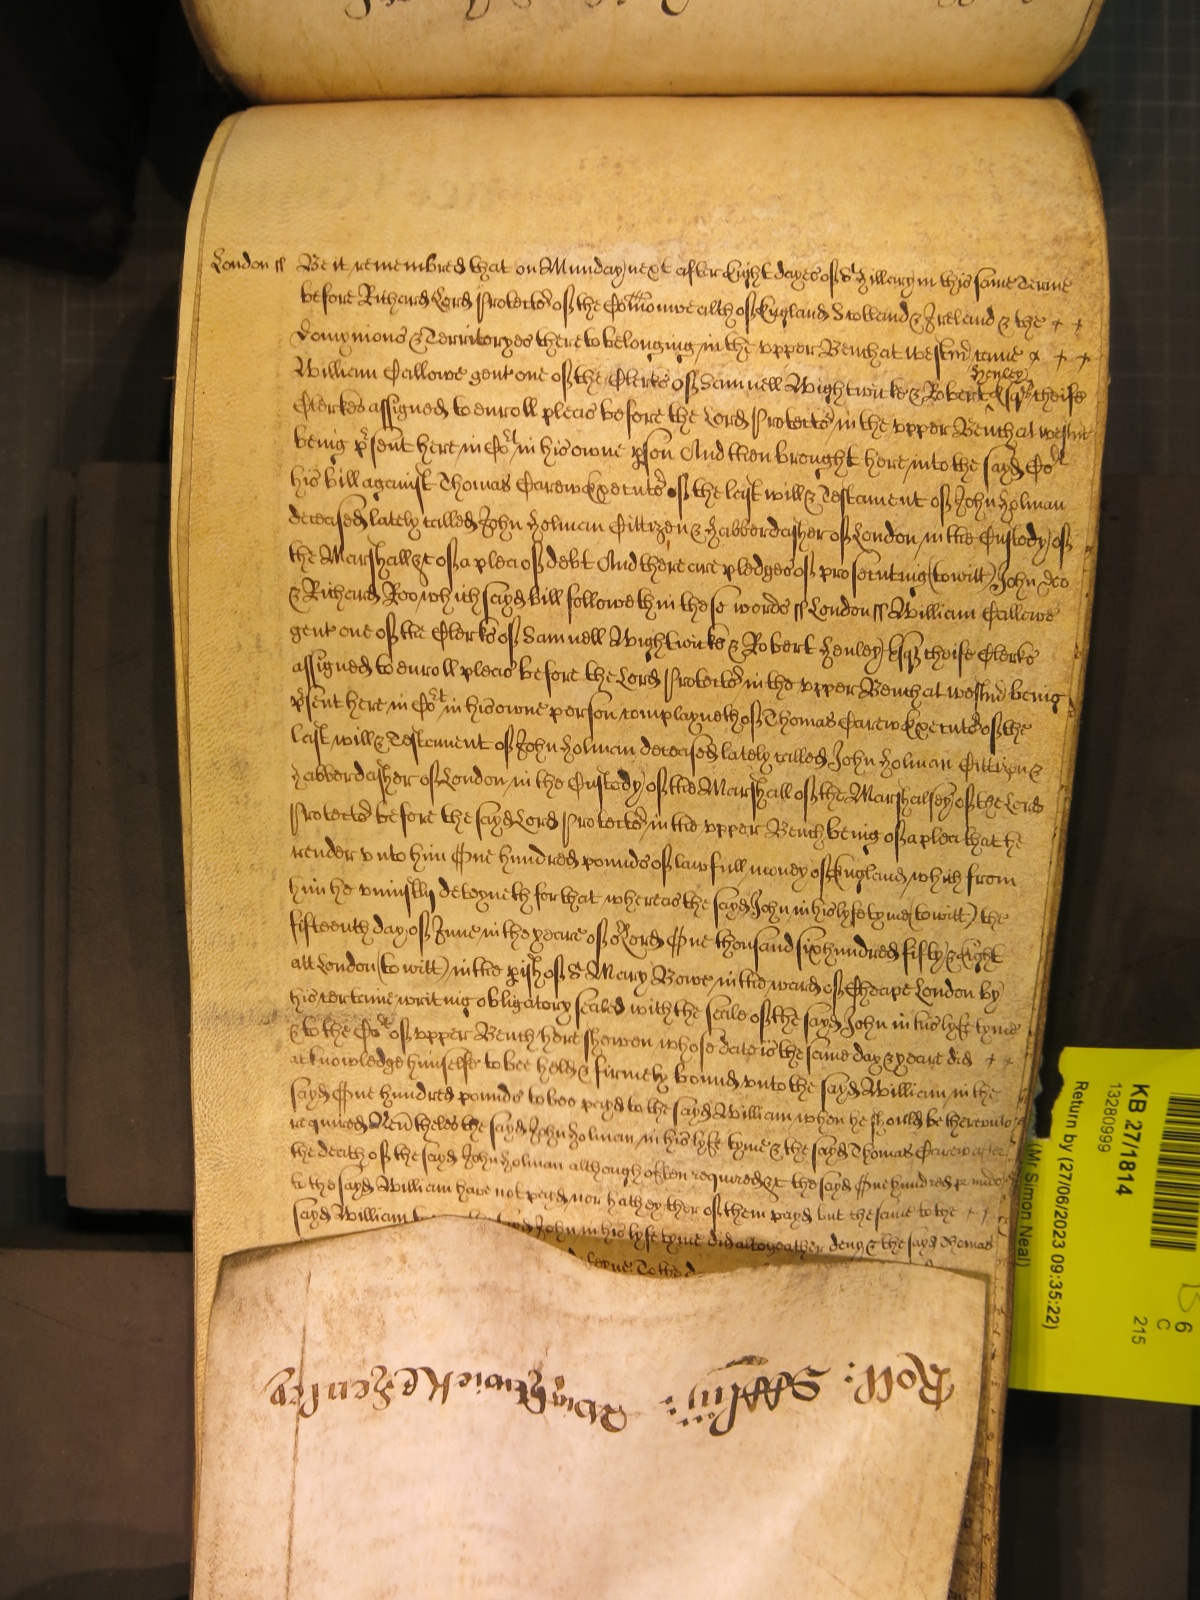 London ss Be it remembred that on Munday next after Eight dayes of St Hillary in this same Terme
before Richard Lord Protector of the Comonwealth of England Scotland & Ireland & the + +
Domynions & Territoryes thereto belonging in the vpper Bench at Westmr came + + +
William Callowe gent one of the Clerks of Samuell Wightwicke & Robert Henley Esqrs cheife
Clerkes assigned to enroll pleas before the Lord Protector in the vpper Bench at Westmr
being prsent here in Cort in his owne pson And then brought here into the sayd Cort
his bill against Thomas Carew Executor of the last will & Testament of John Holman
deceased lately called John Holman Cittizen & Habberdasher of London in the Custody of
the Marshall &c of a plea of debt And there are pledges of prosecuting (to witt) John Doo
& Richard Roo which sayd bill followeth in these words ss London ss William Callowe
gent one of the Clerks of Samuell Wightwicke & Robert Henley Esqrs cheife Clerks
assigned to enroll pleas before the Lord Protector in the vpper Bench at Westmr being
prsent here in Cort in his owne person complayneth of Thomas Carew Executor of the
last will & Testament of John Holman deceased lately called John Holman Cittizen &
Habberdasher of London in the Custody of the Marshall of the Marshalsey of the Lord
Protector before the sayd Lord Protector in the vpper Bench being of a plea that he
render vnto him One hundred pounds of lawfull money of England which from
him he vniustly deteyneth for that whereas the sayd John in his lyfe tyme (to witt) the
fifteenth day of June in the yeare of or Lord One thousand six hundred fifty & Eight
att London (to witt) in the pish of St Mary Bowe in the ward of Cheape London by
his certaine writing obligatory sealed with the seale of the sayd John in his lyfe tyme
& to the Cort of vpper Bench here shewen whose date is the same day & yeare did + +
acknowledge himselfe to bee held & firmely bound vnto the sayd William in the
sayd One hundred pounds to bee payd to the sayd William when he should be therevnto
required Neutheles the sayd John Holman in his lyfe tyme & the sayd Thomas Carew after
the death of the sayd John Holman although often required &c the sayd One hundred pounds
to the sayd William have not payd nor hath eyther of them payd but the same to the + +
sayd William John in his lyfe tyme did altogeather deny & the sayd Thomas
To the d
Roll: Wightwicke & Henley
KB 27/1814
13280999
Return by (27/06/2023 09:35:22)
(Mr Simon Neal)
6
C
215